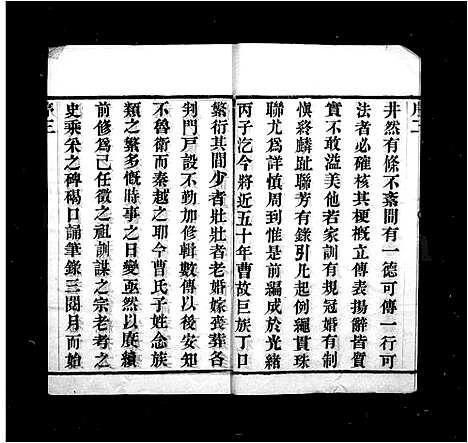 序二
井然有條不紊間有一德可傳一行可
法者必確核其梗概立傳表揚辭皆質
實不敢溢美他若家訓有規冠婚有制
愼終麟趾聯芳有錄引凡起例繩貫珠
聯尤爲詳愼周到惟是前編成於光緖
丙子迄今將近五十年曹故巨族丁口
繁衍其間少者壯壯者老婚嫁喪葬各
判門戶設不勤加修輯數傳以後安知
不魯衛而秦越之耶今曹氏子姓念族
類之繁多慨時事之日變亟然以賡續
前修爲己任徵之祖訓謀之宗老考之
史乘采之碑碣口誦筆錄三閱月而始
序三